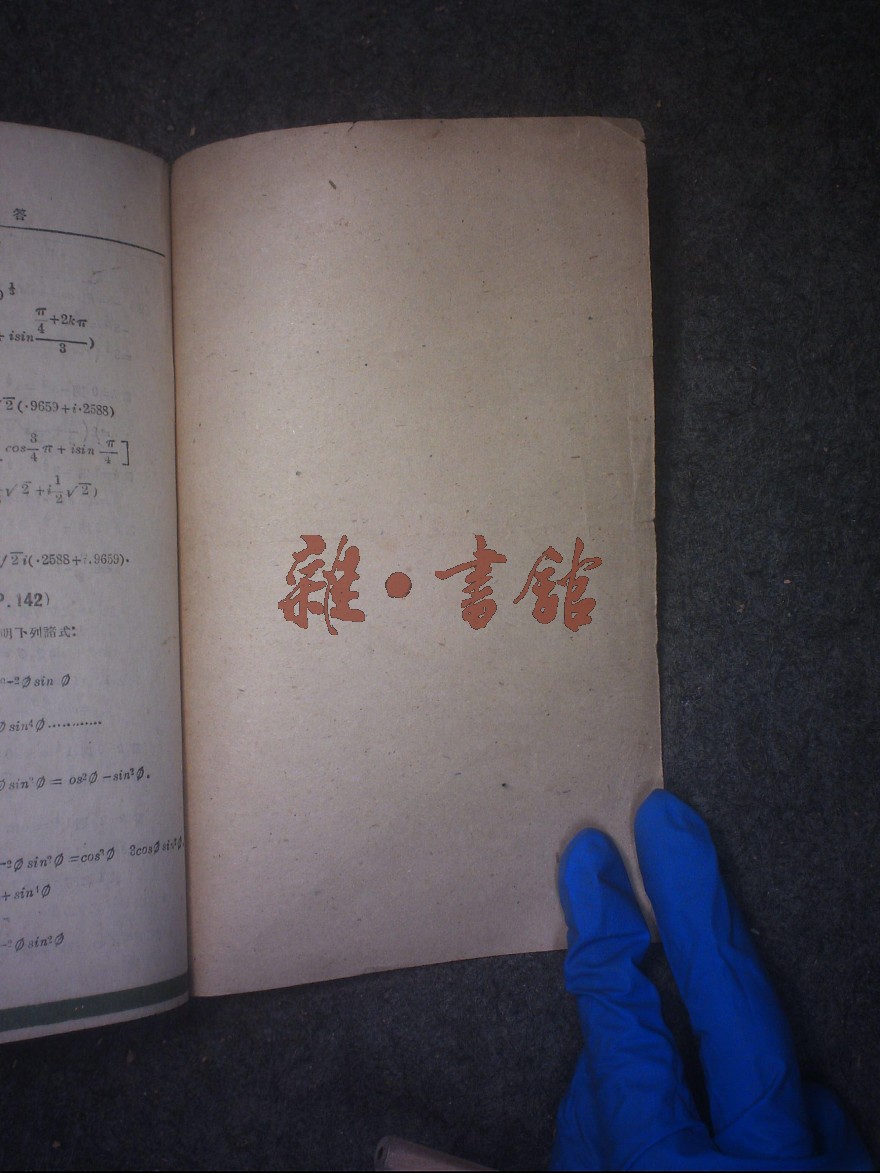 答
)⅓
+ isin (π/4+2kπ)/3 )
√2(·9659+i·2588)
cos 3/4 π + isin π/4 ]
√2 +i 1/2 √2)
√2 i(·2588+i.9659)·
P.142)
明下列諸式:
n-2∅ sin ∅
∅ sin⁴∅············
∅ sin²∅ = os²∅ -sin²∅.
-2∅ sin²∅ =cos³∅ 3cos∅ sin²∅.
+ sin⁴∅
-2∅ sin²∅
雜·書館